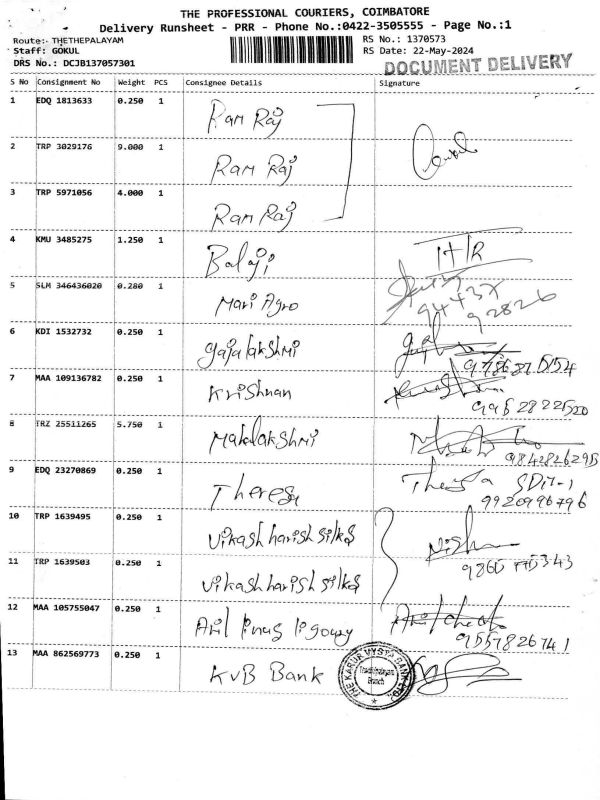 THE PROFESSIONAL COURIERS, COIMBATORE
Delivery Runsheet - PRR - Phone No.:0422-3505555 - Page No.:1
Route: THETHEPALAYAM RS No.: 1370573
Staff: GOKUL RS Date: 22-May-2024
DRS No.: DCJB137057301 DOCUMENT DELIVERY
S No Consignment No Weight PCS Consignee Details Signature
1 EDQ 1813633 0.250 1 Ram Raj
2 TRP 3029176 9.000 1 Ram Raj
3 TRP 5971056 4.000 1 Ram Raj
4 KMU 3485275 1.250 1 Balaji
5 SLM 346436020 0.280 1 Mari Agro
94437
92826
6 KDI 1532732 0.250 1 gajalakshmi
7 MAA 109136782 0.250 1 Krishnan
8 TRZ 25511265 5.750 1 Mahalakshmi
9 EDQ 23270869 0.250 1 Theresa
9920996796
10 TRP 1639495 0.250 1 vikash harish silks
11 TRP 1639503 0.250 1 vikash harish silks
12 MAA 105755047 0.250 1 Aril
9557826741
13 MAA 862569773 0.250 1 KVB Bank
THE KARUR VYSYA BANK LTD.
Branch